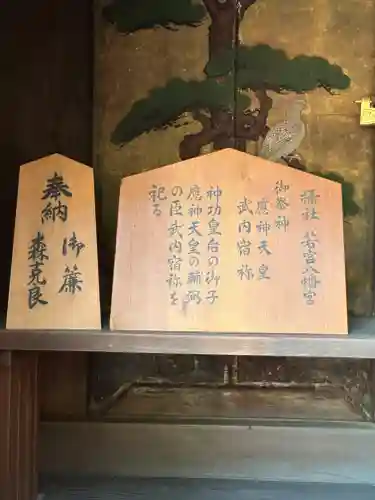 摂社 若宮八幡宮
御祭神
應神天皇
武内宿祢
神功皇后の御子
應神天皇の輔弼
の臣武内宿祢を
祀る
奉納 御簾
森克良